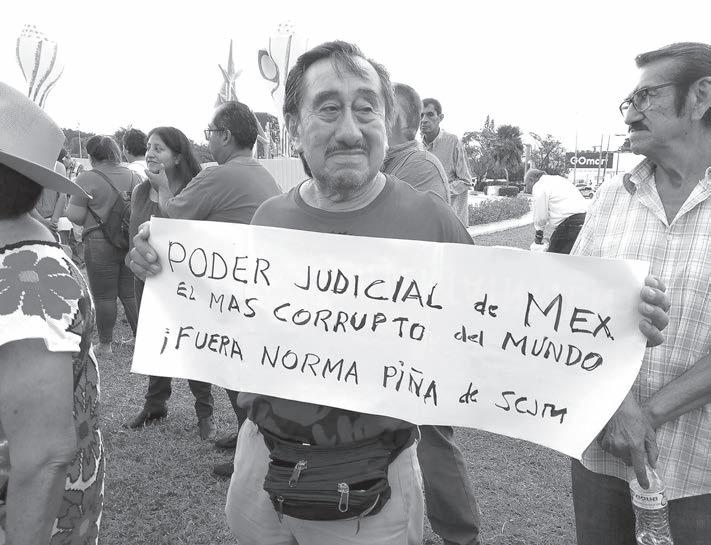 GOmart
PODER JUDICIAL de MEX.
EL MAS CORRUPTO del MUNDO
¡FUERA NORMA PIÑA de SCJN